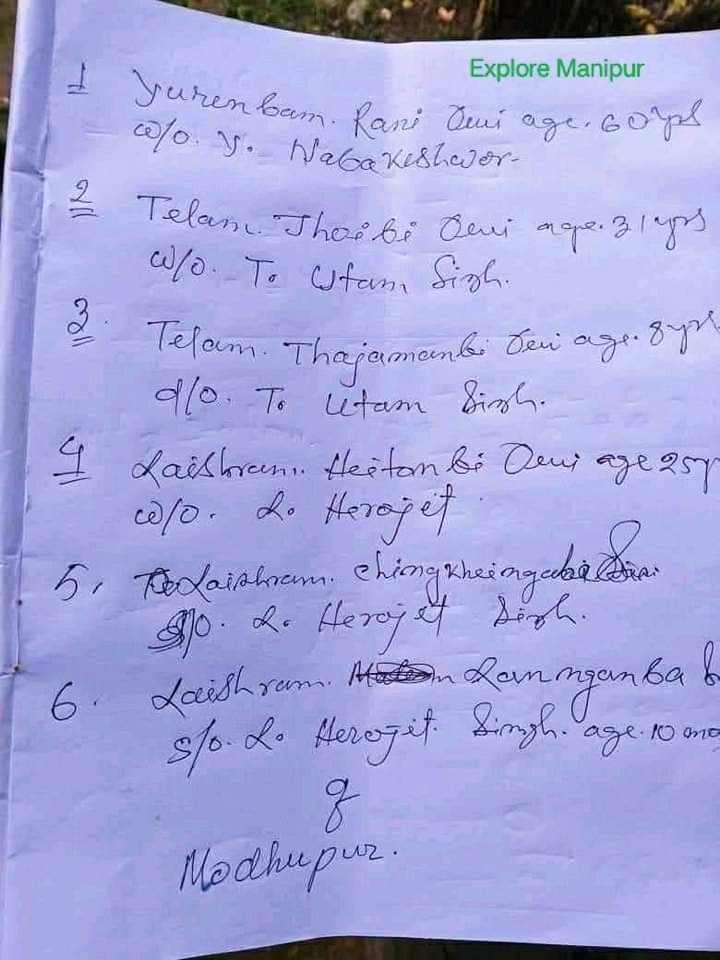 Explore Manipur
1 Yurenbam. Rani Devi age. 60 yrs
w/o. Y. Nabakeshwor-
2 Telam. Thoibi Devi age. 31 yrs
w/o. To Utam Singh.
3. Telam. Thajamanbi Devi age. 8 yrs.
d/o. To Utam Singh.
4 Laishram. Heitonbi Devi age 25 y
w/o. L. Herojet
5. Laishram. Chingkheinganbi
/o. L. Herojet Singh.
6. Laishram. Lannganba
s/o. L. Herojit. Singh. age. 10 mo
of
Modhupur.